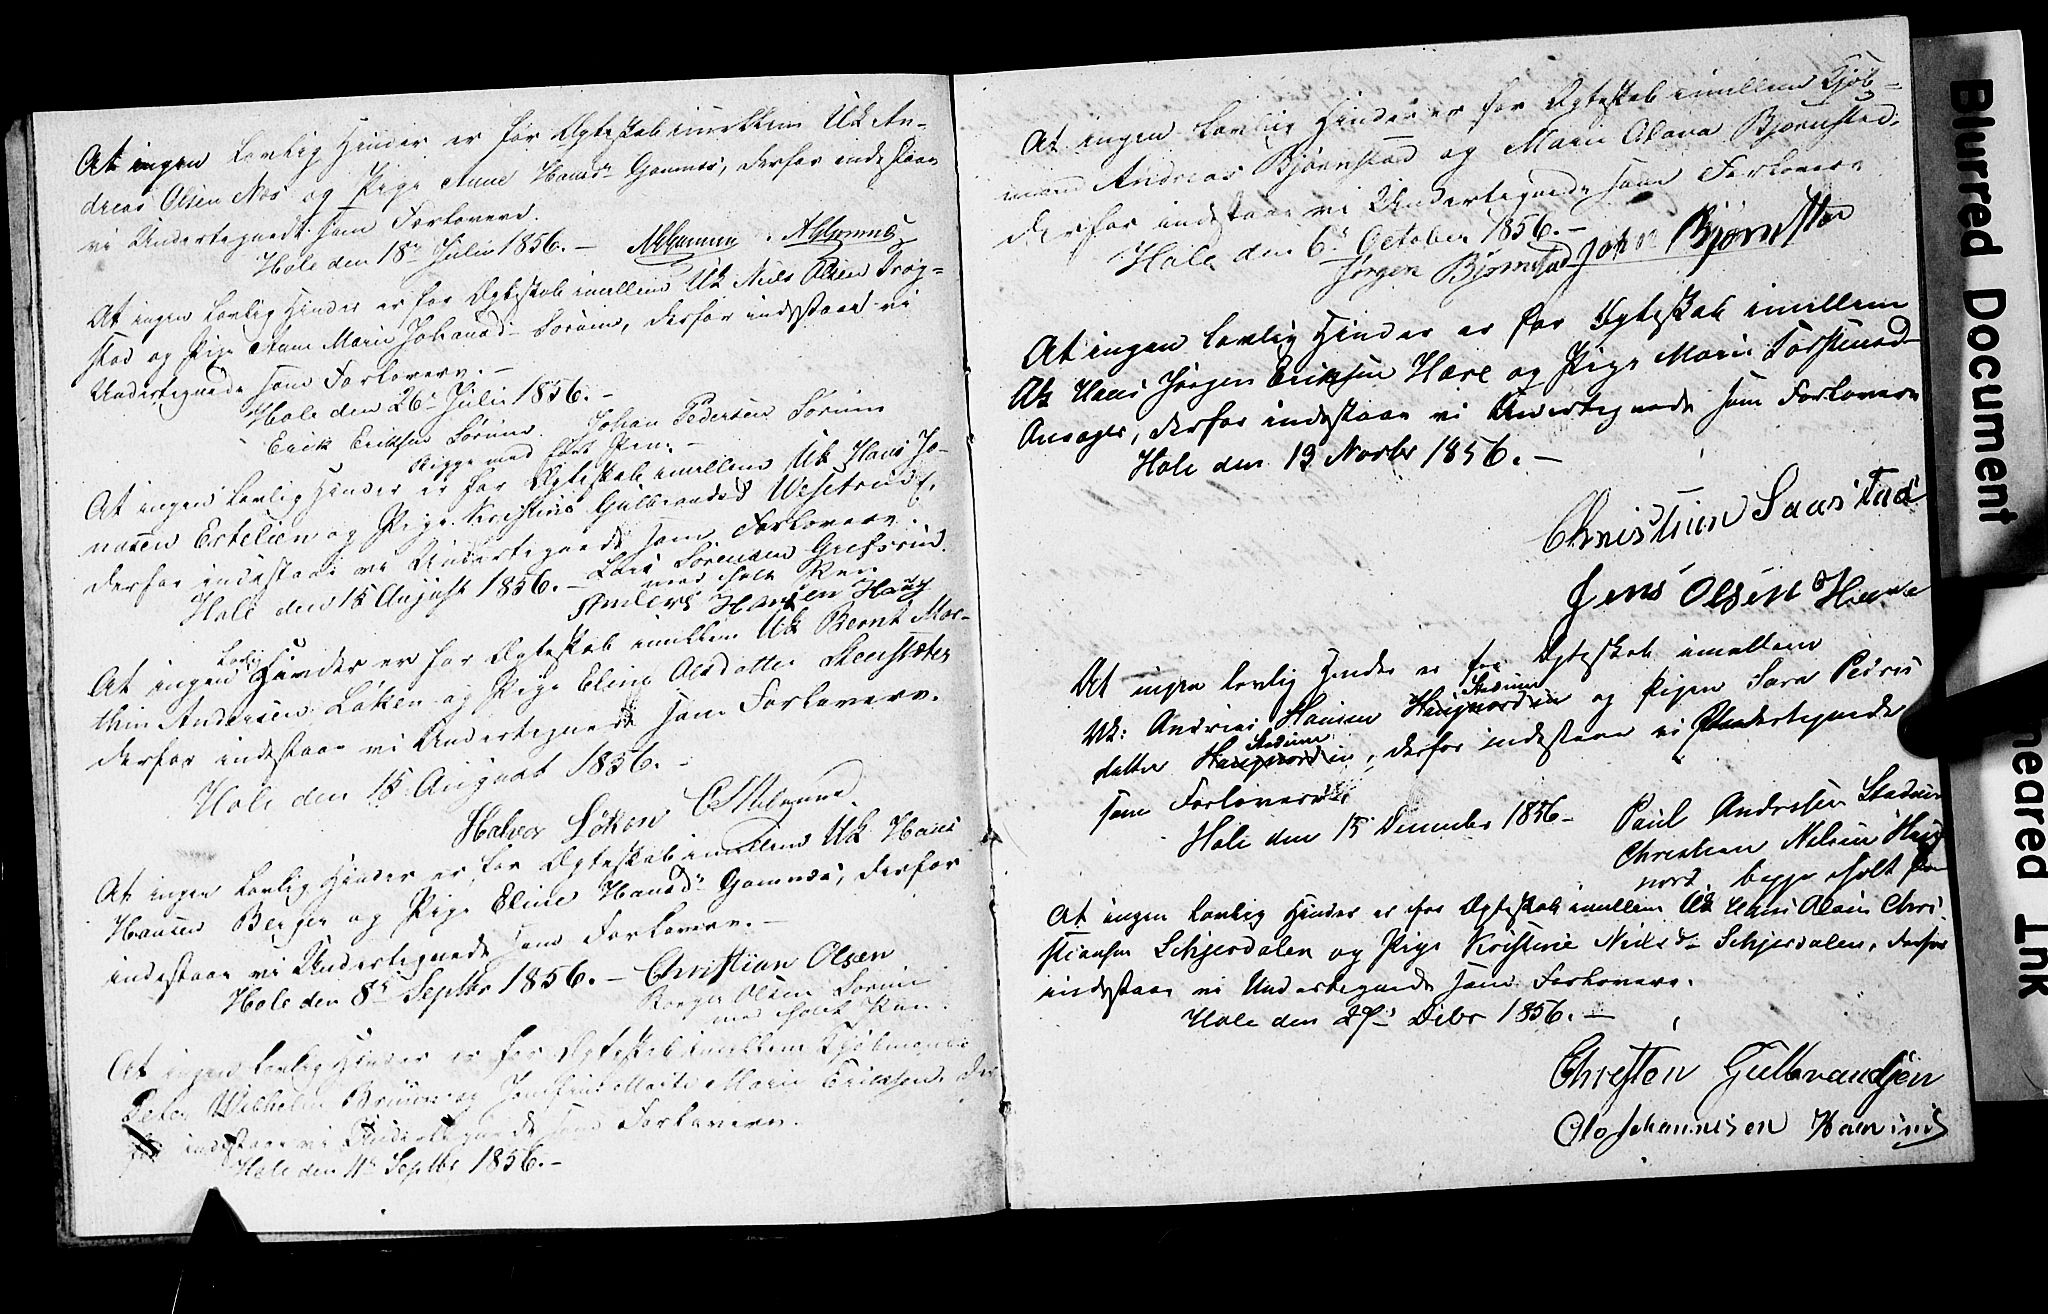 At ingen Lovlig Hinder er for Ægteskab imellem Uk An-
dreas Olsen Næs og Pige Anne Hansd. Gomnæs, derfor indestaae
vi Undertegnede som Forlovere.
Hole den 18de Julii 1856. –
At ingen Lovlig Hinder er for Ægteskab imellem Uk Niels Olsen Trøg-
stad og Pige Anne Marie Johansd. Sørum, derfor indestaae vi
Undertegnede som Forlovere. –
Hole den 26. Julii 1856. –
Erick Eriksen Sørum. Johan Pedersen Sørum
Begge med holt Pen. –
At ingen Lovlig Hinder er for Ægteskab imellem Uk Hans Jo-
nasen Estelien og Pige Kristine Gulbrandsd Wesetrud,
derfor indestaae vi Undertegnede som Forlovere.
Hole den 15 August 1856. – Lars Sørensen Grefsrud
med holt Pen
Anders Hansen Haug
At ingen Lovlig Hinder er for Ægteskab imellem Uk Bernt Mar-
thin Andersen Løken og Pige Eline Olsdatter Steensæter
derfor indestaae vi Undertegnede som Forlovere.
Hole den 15 August 1856. –
Halvor Løken
At ingen Lovlig Hinder er for Ægteskab imellem Uk Hans
Hansen Berger og Pige Eline Hansd. Gomnæs, derfor
indestaae vi Undertegnede som Forlovere. –
Hole den 8de Septbr 1856. – Christian Olsen
Olsen Sørum
med holt Pen.
At ingen Lovlig Hinder er for Ægteskab imellem Kjøbmand
Peter Wilhelm Bruun og Jomfrue Marthe Marie Eriksen, der
for indestaae vi Undertegnede som Forlovere.
Hole den 4. Septbr 1856. –
At ingen Lovlig Hinder er for Ægteskab imellem Kjøb-
mand Andreas Bjørnstad og Maria Olava Bjørnstad,
derfor indestaae vi Undertegnede som Forlovere
Hole den 6. October 1856. –
Jørgen Bjørnstad John Bjørnstad
At ingen Lovlig Hinder er for Ægteskab imellem
Uk Hans Jørgen Eriksen Hære og Pige Marie Torstensd
Onsager, derfor indestaae vi Undertegnede som Forlovere
Hole den 19 Novbr 1856. –
Christian Saastad
Jens Olsen Hære
At ingen Lovlig Hinder er for Ægteskab imellem
Stadum
Uk: Andreas Hansen Haugnordin og Pigen Sara Peders
Stadum
datter Haugnordin, derfor indestaae vi Undertegnede
som Forlovere.
Hole den 15 December 1856 – Paul Andersen Stadum
Christian Nilsen Haug
nord begge holt Pen
At ingen Lovlig Hinder er for Ægteskab imellem Uk Hans Olaus Chri-
stiansen Schjerdalen og Pige Kristine Nielsd. Schjerdalen, derfor
indestaae vi Undertegnede som Forlovere.
Hole den 27. Debr 1856. –
Christen Gulbrandsen
Ole Johannesen
Blurred Document
meared Ink